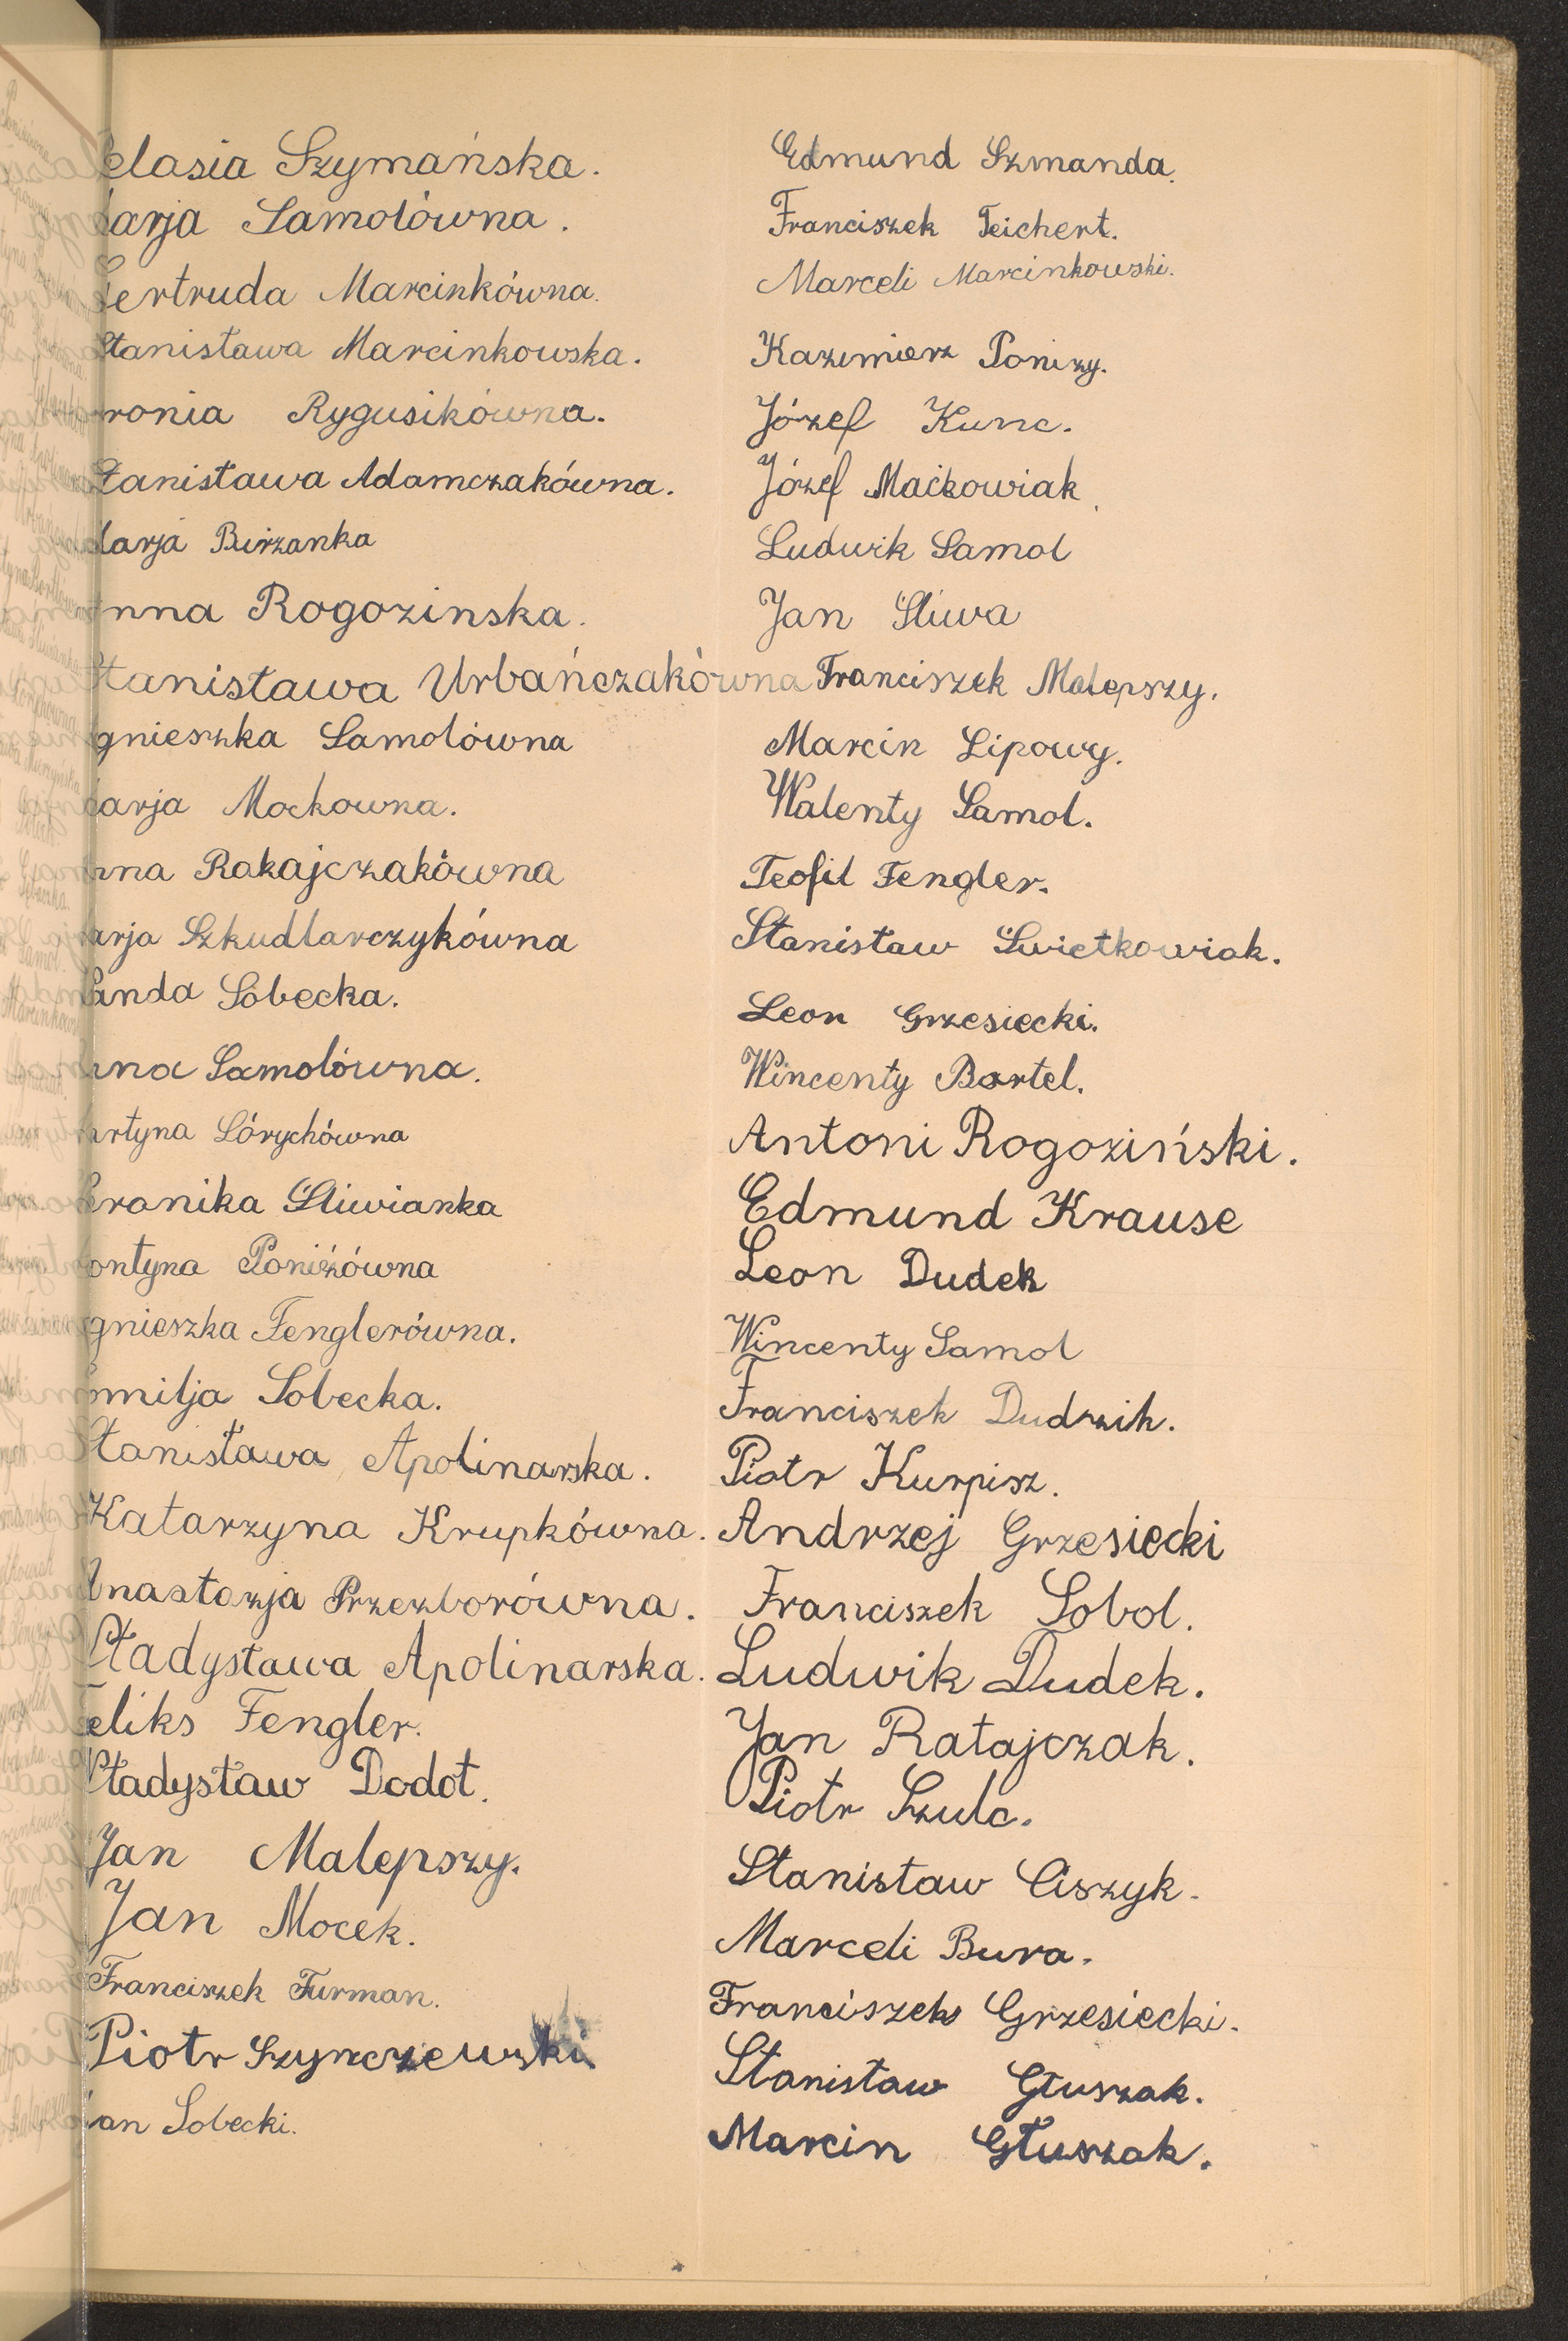 elasia Szymańska.
arja Samolówna.
Gertruda Marcinkówna.
Stanisława Marcinkowska.
ronia Rygusikówna.
Stanisława Adamczakówna.
arja Burzanka
nna Rogozinska.
Stanisława Urbańczakówna
gnieszka Samolówna
arja Mockowna.
nna Rakajczakówna
arja Szkudlarczykówna
anda Sobecka.
nna Samolówna.
artyna Górychówna
eronika Śliwianka
ontyna Poniżówna
gnieszka Fenglerówna.
milja Sobecka.
Stanisława Apolinarska.
Katarzyna Krupkówna.
Anastazja Przezborówna.
Władysława Apolinarska.
Feliks Fengler.
Władysław Dodot.
Jan Malepszy.
Jan Mocek.
Franciszek Furman.
Piotr Szymczewski
Jan Sobecki.
Edmund Szmanda.
Franciszek Teichert.
Marceli Marcinkowski.
Kazimierz Ponizy.
Józef Kunc.
Józef Maćkowiak.
Ludwik Samol
Jan Śliwa
Franciszek Malepszy.
Marcin Lipowy.
Walenty Samol.
Teofil Fengler.
Stanisław Świetkowiak.
Leon Grzesiecki.
Wincenty Bartel.
Antoni Rogoziński.
Edmund Krause
Leon Dudek
Wincenty Samol
Franciszek Dudzik.
Piotr Kurpisz.
Andrzej Grzesiecki
Franciszek Sobol.
Ludwik Dudek.
Jan Ratajczak.
Piotr Szulc.
Stanisław Ciszyk.
Marceli Bura.
Franciszek Grzesiecki.
Stanisław Głuszak.
Marcin Głuszak.